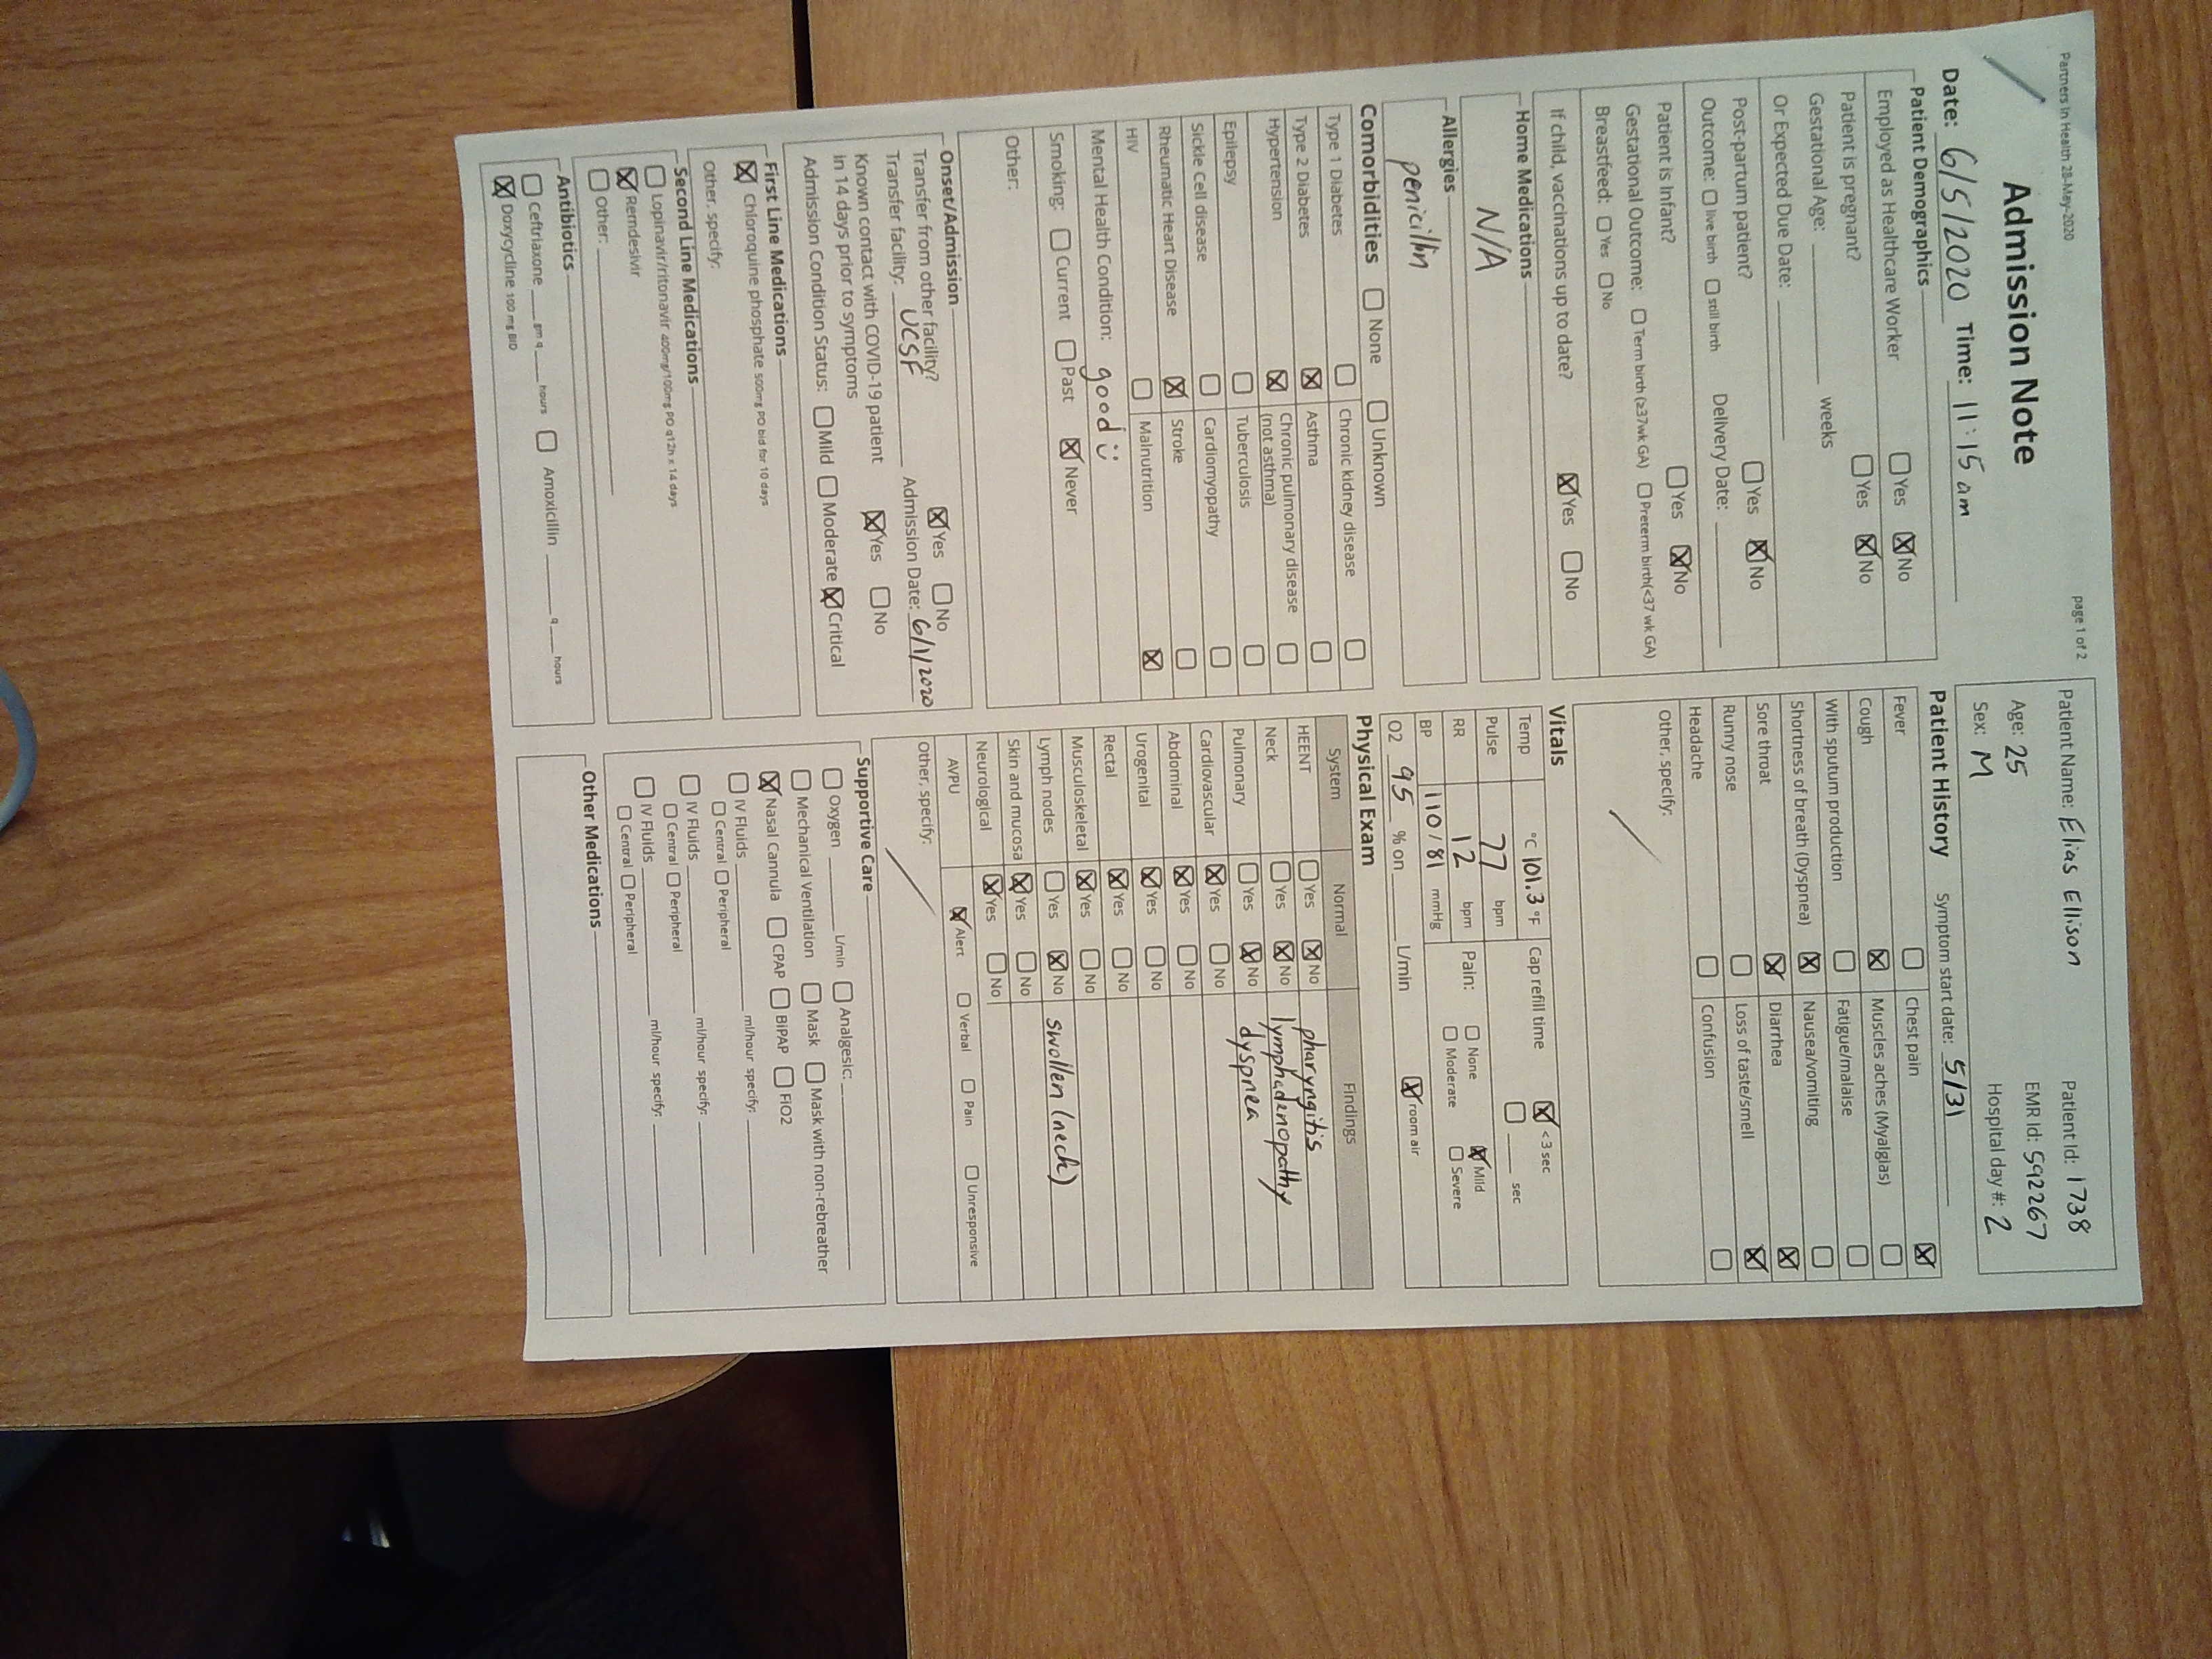 Partners In Health 28-May-2020
page 1 of 2
Admission Note
Date: 6/5/2020 Time: 11:15 am
Patient Name: Elias Ellison Patient Id: 1738
Age: 25 EMR Id: 592267
Sex: M Hospital day #: 2
Patient Demographics
Employed as Healthcare Worker ☐ Yes ☒ No
Patient is pregnant? ☐ Yes ☒ No
Gestational Age: ______ weeks
Or Expected Due Date: ______
Post-partum patient? ☐ Yes ☒ No
Outcome: ☐ live birth ☐ still birth Delivery Date: ______
Patient is Infant? ☐ Yes ☒ No
Gestational Outcome: ☐ Term birth (≥37wk GA) ☐ Preterm birth(<37 wk GA)
Breastfeed: ☐ Yes ☐ No
If child, vaccinations up to date? ☒ Yes ☐ No
Home Medications
N/A
Allergies
penicillin
Comorbidities ☐ None ☐ Unknown
Type 1 Diabetes ☐ Chronic kidney disease ☐
Type 2 Diabetes ☒ Asthma ☐
Hypertension ☒ Chronic pulmonary disease (not asthma) ☐
Epilepsy ☐ Tuberculosis ☐
Sickle Cell disease ☐ Cardiomyopathy ☐
Rheumatic Heart Disease ☒ Stroke ☐
HIV ☐ Malnutrition ☒
Mental Health Condition: good :)
Smoking: ☐ Current ☐ Past ☒ Never
Other:
Onset/Admission
Transfer from other facility? ☒ Yes ☐ No
Transfer facility: UCSF Admission Date: 6/1/2020
Known contact with COVID-19 patient
in 14 days prior to symptoms ☒ Yes ☐ No
Admission Condition Status: ☐ Mild ☐ Moderate ☒ Critical
First Line Medications
☒ Chloroquine phosphate 500mg PO bid for 10 days
Other, specify:
Second Line Medications
☐ Lopinavir/ritonavir 400mg/100mg PO q12h x 14 days
☒ Remdesivir
☐ Other: ______
Antibiotics
☐ Ceftriaxone ____ gm q ____ hours ☐ Amoxicillin ____ q ____ hours
☒ Doxycycline 100 mg BID
Patient History Symptom start date: 5/31
Fever ☐ Chest pain ☒
Cough ☒ Muscles aches (Myalgias) ☐
With sputum production ☐ Fatigue/malaise ☐
Shortness of breath (Dyspnea) ☒ Nausea/vomiting ☐
Sore throat ☒ Diarrhea ☒
Runny nose ☐ Loss of taste/smell ☒
Headache ☐ Confusion ☐
Other, specify:
Vitals
Temp °C 101.3 °F Cap refill time ☒ <3 sec ☐ ____ sec
Pulse 77 bpm Pain: ☐ None ☒ Mild
RR 12 bpm ☐ Moderate ☐ Severe
BP 110/81 mmHg
O2 95 % on ____ L/min ☒ room air
Physical Exam
System Normal Findings
HEENT ☐ Yes ☒ No pharyngitis
Neck ☐ Yes ☒ No lymphadenopathy
Pulmonary ☐ Yes ☒ No dyspnea
Cardiovascular ☒ Yes ☐ No
Abdominal ☒ Yes ☐ No
Urogenital ☒ Yes ☐ No
Rectal ☒ Yes ☐ No
Musculoskeletal ☒ Yes ☐ No
Lymph nodes ☐ Yes ☒ No swollen (neck)
Skin and mucosa ☒ Yes ☐ No
Neurological ☒ Yes ☐ No
AVPU ☒ Alert ☐ Verbal ☐ Pain ☐ Unresponsive
Other, specify:
Supportive Care
☐ Oxygen ______ L/min ☐ Analgesic: ______
☐ Mechanical Ventilation ☐ Mask ☐ Mask with non-rebreather
☒ Nasal Cannula ☐ CPAP ☐ BiPAP ☐ FiO2
☐ IV Fluids ______ ml/hour specify: ______
☐ Central ☐ Peripheral
☐ IV Fluids ______ ml/hour specify: ______
☐ Central ☐ Peripheral
☐ IV Fluids ______ ml/hour specify: ______
☐ Central ☐ Peripheral
Other Medications